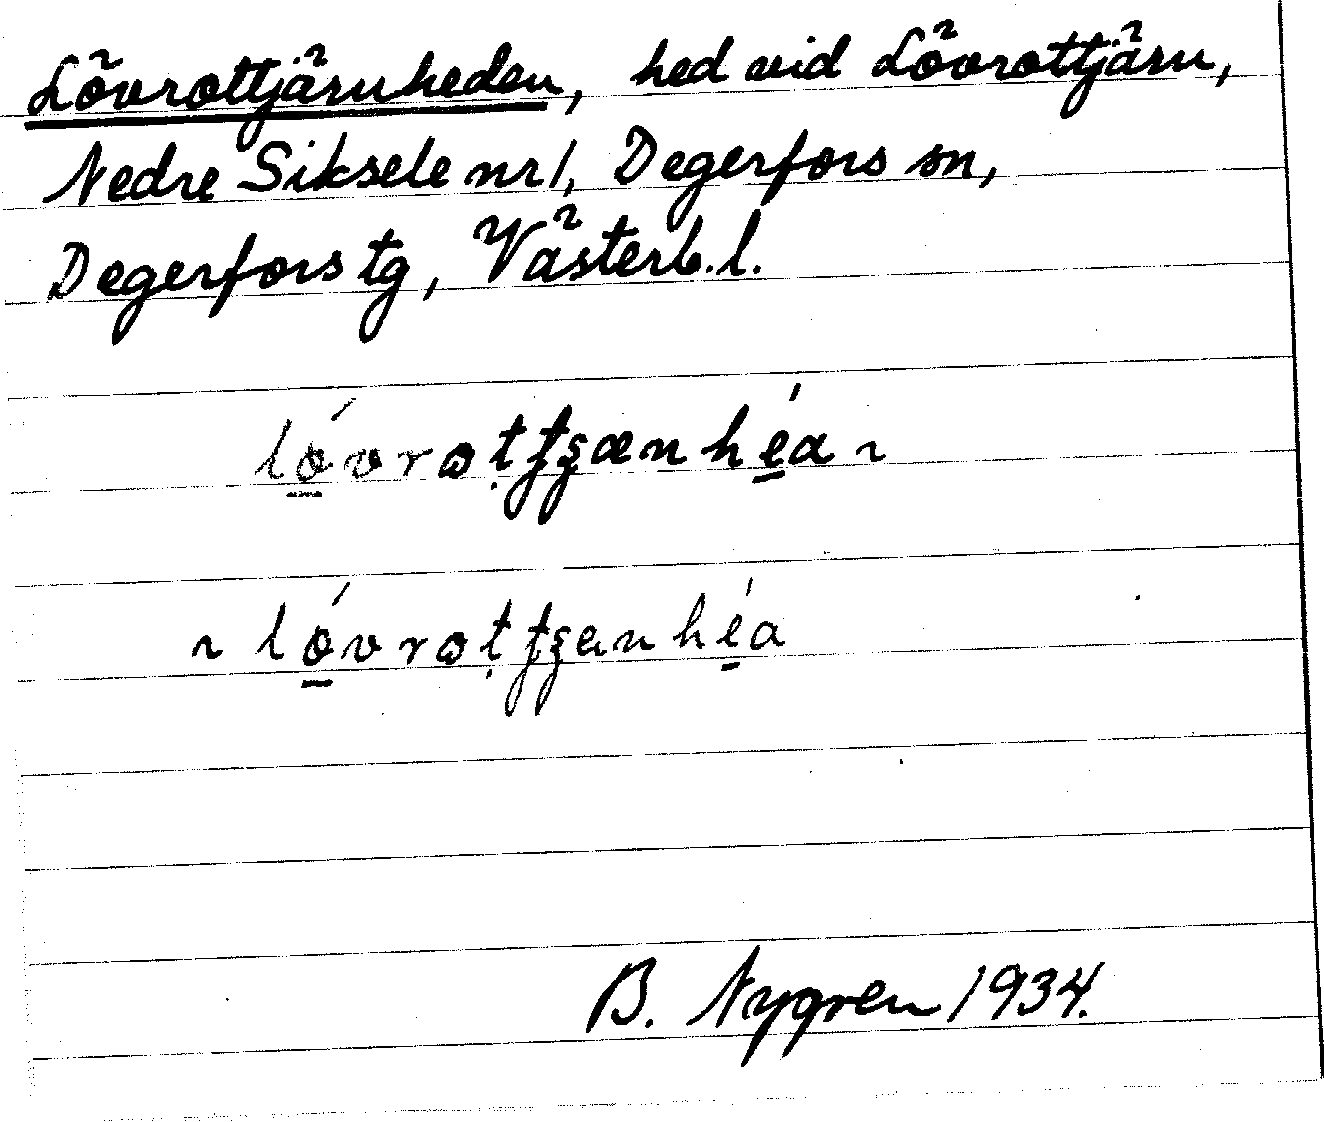 Lövrottjärnheden, hed vid Lövrottjärn,
Nedre Siksele nr 1, Degerfors sn,
Degerfors tg, Västerb. l.
B. Nygren 1934.